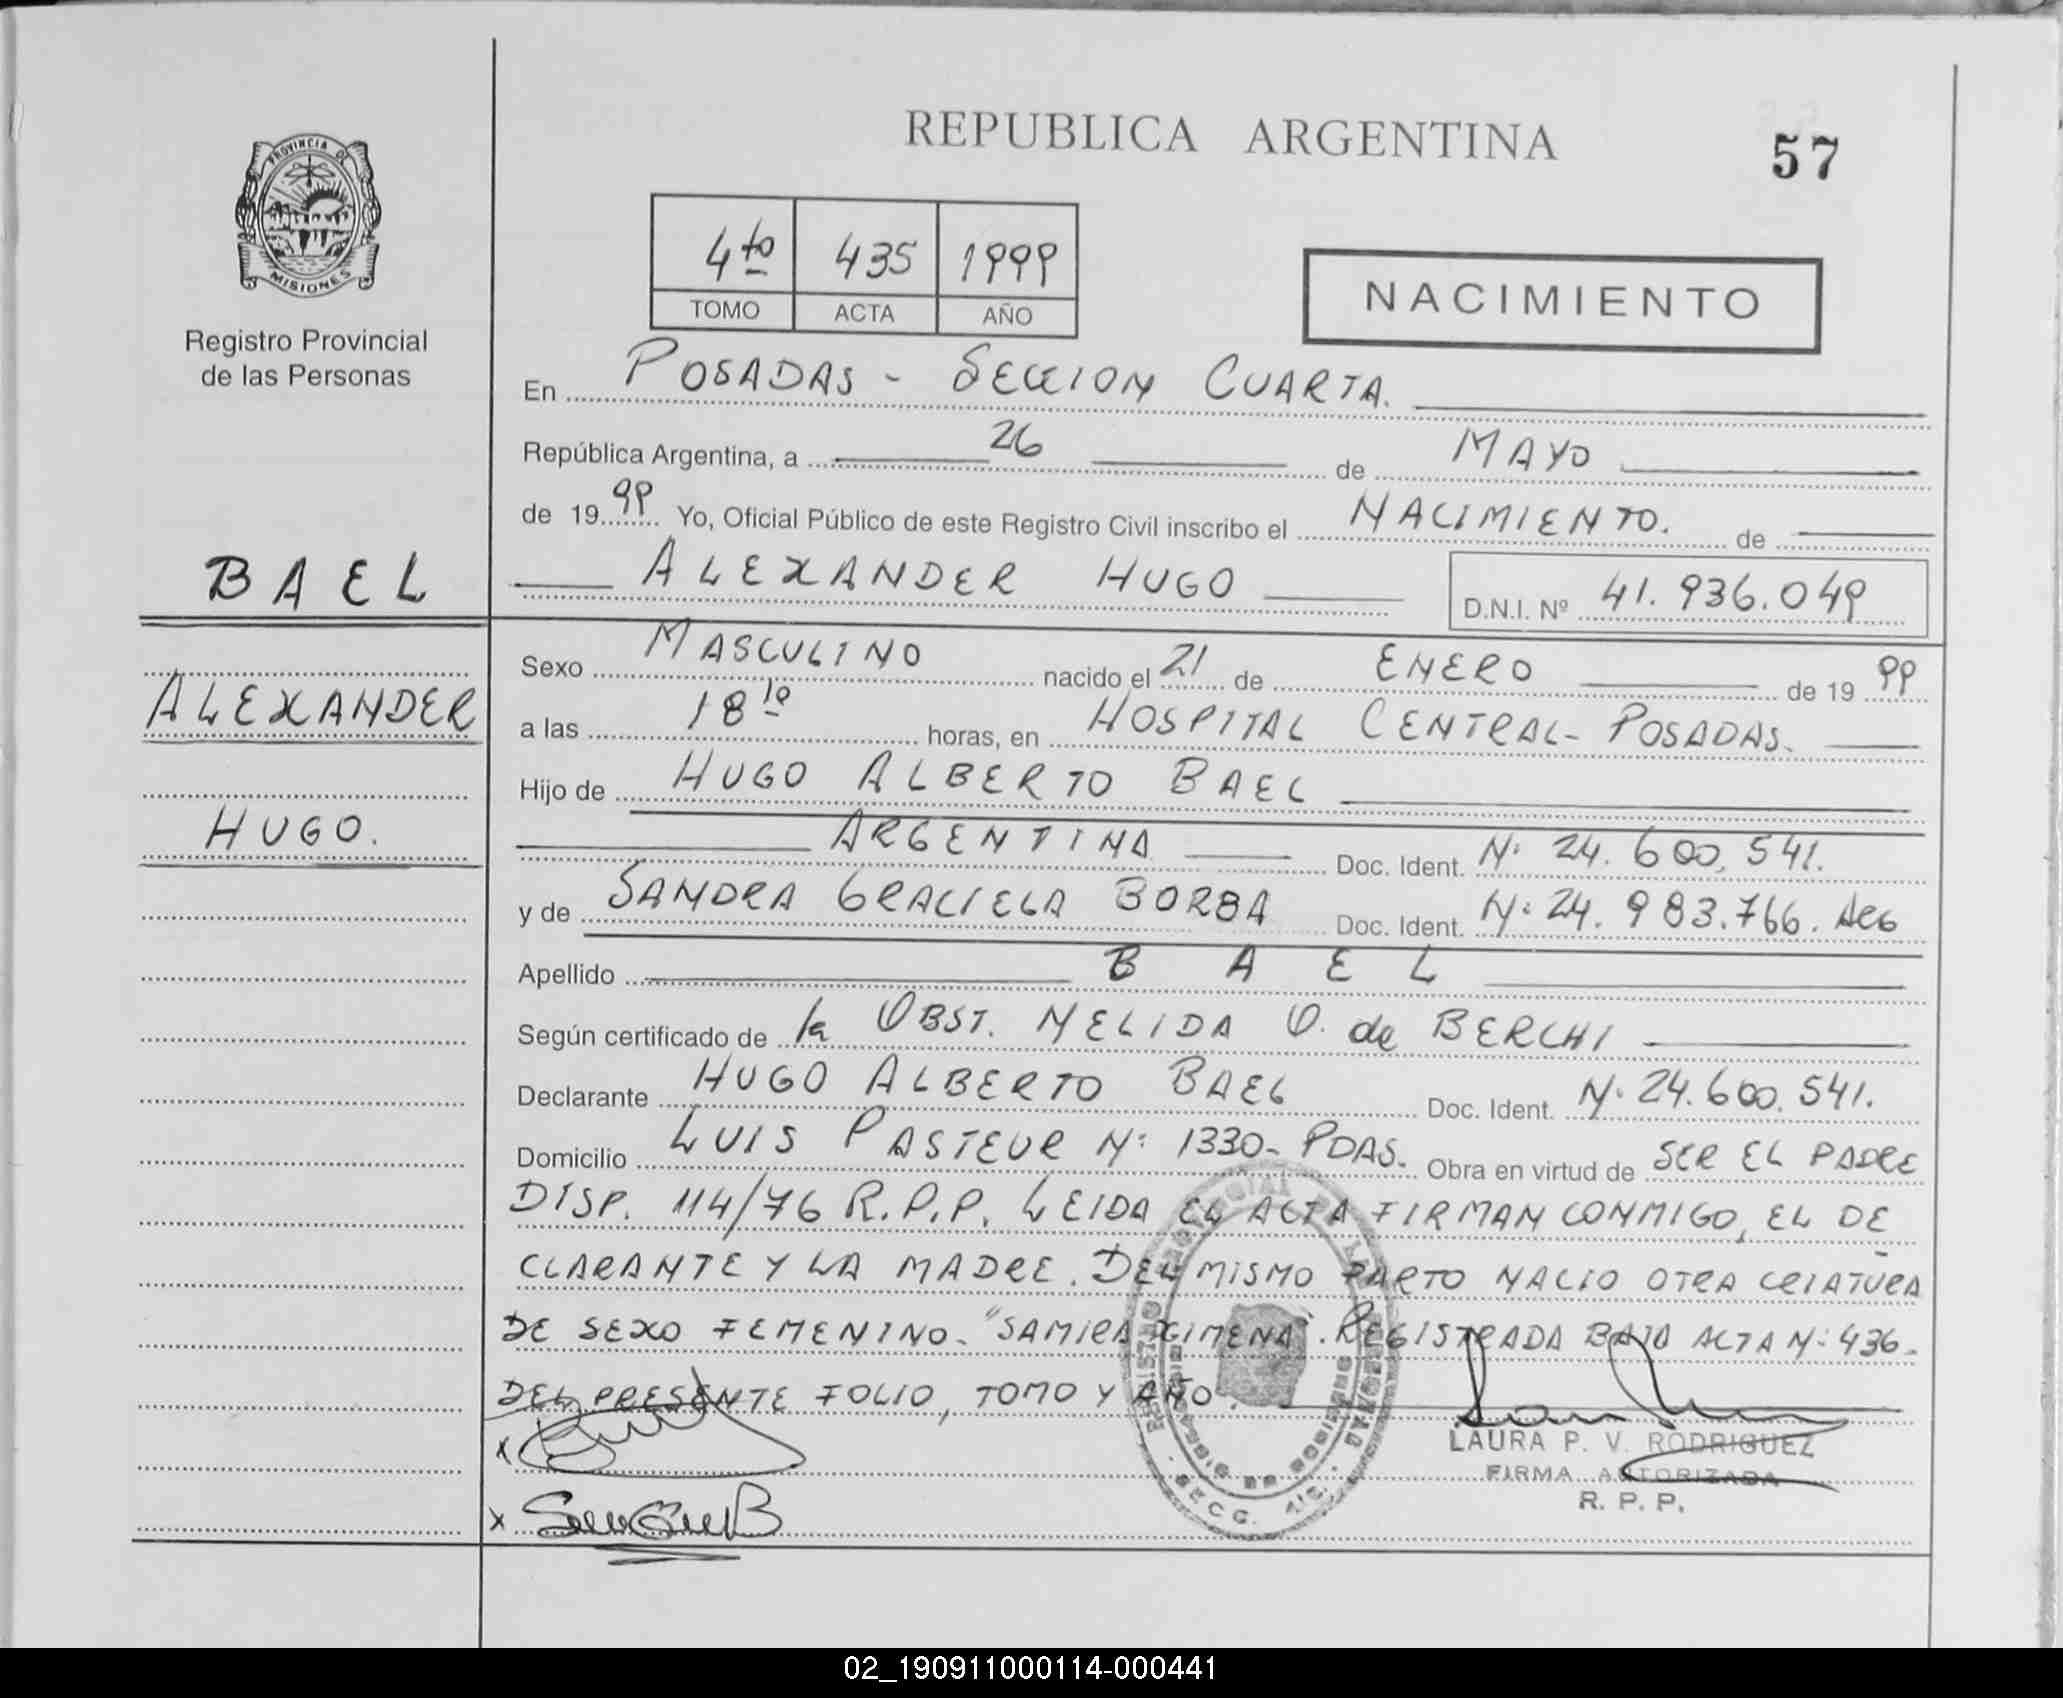 REPUBLICA ARGENTINA
57
PROVINCIA DE
MISIONES
Registro Provincial
de las Personas
4to 435 1999
TOMO ACTA AÑO
NACIMIENTO
En POSADAS - SECCION CUARTA.
República Argentina, a 26 de MAYO
de 19 99 Yo, Oficial Público de este Registro Civil inscribo el NACIMIENTO. de
ALEXANDER HUGO D.N.I. Nº 41.936.049
BAEL
ALEXANDER
HUGO.
Sexo MASCULINO nacido el 21 de ENERO de 19 99
a las 18 10 horas, en HOSPITAL CENTRAL - POSADAS.
Hijo de HUGO ALBERTO BAEL
ARGENTINA Doc. Ident. N: 24.600.541.
y de SANDRA GRACIELA BORBA Doc. Ident. N: 24.983.766. ARG
Apellido B A E L
Según certificado de la OBST. NELIDA O. de BERCHI
Declarante HUGO ALBERTO BAEL Doc. Ident. N: 24.600.541.
Domicilio LUIS PASTEUR N: 1330 - PDAS. Obra en virtud de SER EL PADRE
DISP. 114/76 R.P.P. LEIDA EL ACTA FIRMAN CONMIGO, EL DE
CLARANTE Y LA MADRE. DEL MISMO PARTO NACIO OTRA CRIATURA
DE SEXO FEMENINO - "SAMIRA XIMENA". REGISTRADA BAJO ACTA N: 436 -
DEL PRESENTE FOLIO, TOMO Y AÑO.
X
X
LAURA P. V. RODRIGUEZ
FIRMA AUTORIZADA
R. P. P.
02_190911000114-000441